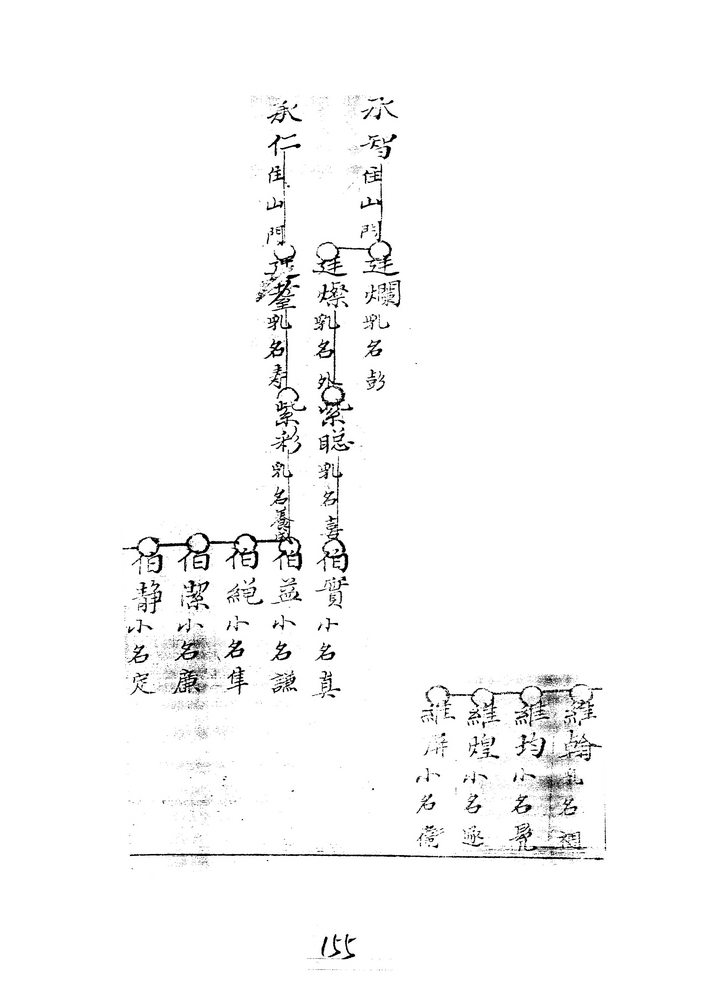 承智住山門
承仁住山門
廷爛乳名彭
廷燦乳名外
廷乳名寿
紫聪乳名喜
紫彩乳名養
伯實小名真
伯益小名謙
伯繩小名隼
伯潔小名廉
伯静小名定
維翰乳名
維均小名
維煌小名
維屏小名
155